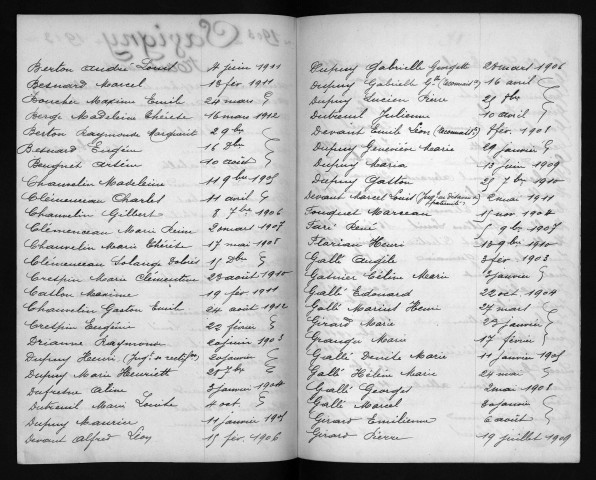 1903 Savigny 1912
Berton André Louis 4 juin 1911
Besnard Marcel 18 fév. 1911
Boucher Maxime Emile 24 mars
Berge Madeleine Thérèse 16 mars 1912
Berton Raymonde Marguerite 2 9bre
Besnard Eugène 16 7bre
Beugnet Arsène 10 août
Chauvelin Madeleine 11 9bre 1905
Clémenceau Charles 11 avril
Chauvelin Gilbert 8 7bre 1906
Clémenceau Marie Reine 2 mars 1907
Chauvelin Marie Thérèse 17 mai 1908
Clémenceau Solange 15 Xbre
Crespin Marie Clémentine 23 août 1910
Caslon Maxime 19 fév. 1911
Chauvelin Gaston Emile 24 août 1912
Crespin Eugénie 22 février
Drianne Raymond 20 juin 1903
Dupuy Henri (Jugt de rectifon) 20 janvier
Dupuy Marie Henriette 28 7bre
Dufresne Aline 3 janvier 1904
Dubreuil Marie Louise 4 oct.
Dupuy Maurice 11 janvier 1905
Devant Alfred Léon 15 fév. 1906
Dupuy Gabrielle Georgette 28 mars 1906
Dupuy Gabrielle 16 avril
Dupuy Lucien Pierre 21 8bre
Dubreuil Julienne 10 avril
Devant Emile Léon 8 fév. 1908
Dupuy Geneviève Marie 29 janvier
Dupuy Maria 13 juin 1909
Dupuy Gaston 25 7bre 1910
Devant Marcel Louis (Jugt en désaveu de paternité) 2 mai 1911
Fouquet Marceau 15 nov 1904
Fari René 5 9bre 1907
Florian Henri 18 9bre 1910
Galli Angèle 3 fév 1903
Gasnier Céline Marie 3 janvier
Galli Edouard 22 oct. 1904
Galli Marius Henri 27 mars
Girard Marie 29 janvier
Grangu Marie 17 février
Galli Denise Marie 11 janvier 1905
Galli Hélène Marie 24 mai
Galli Georges 2 mai 1908
Galli Marcel 30 janvier
Girard Emilienne 6 août
Girard Pierre 19 juillet 1909